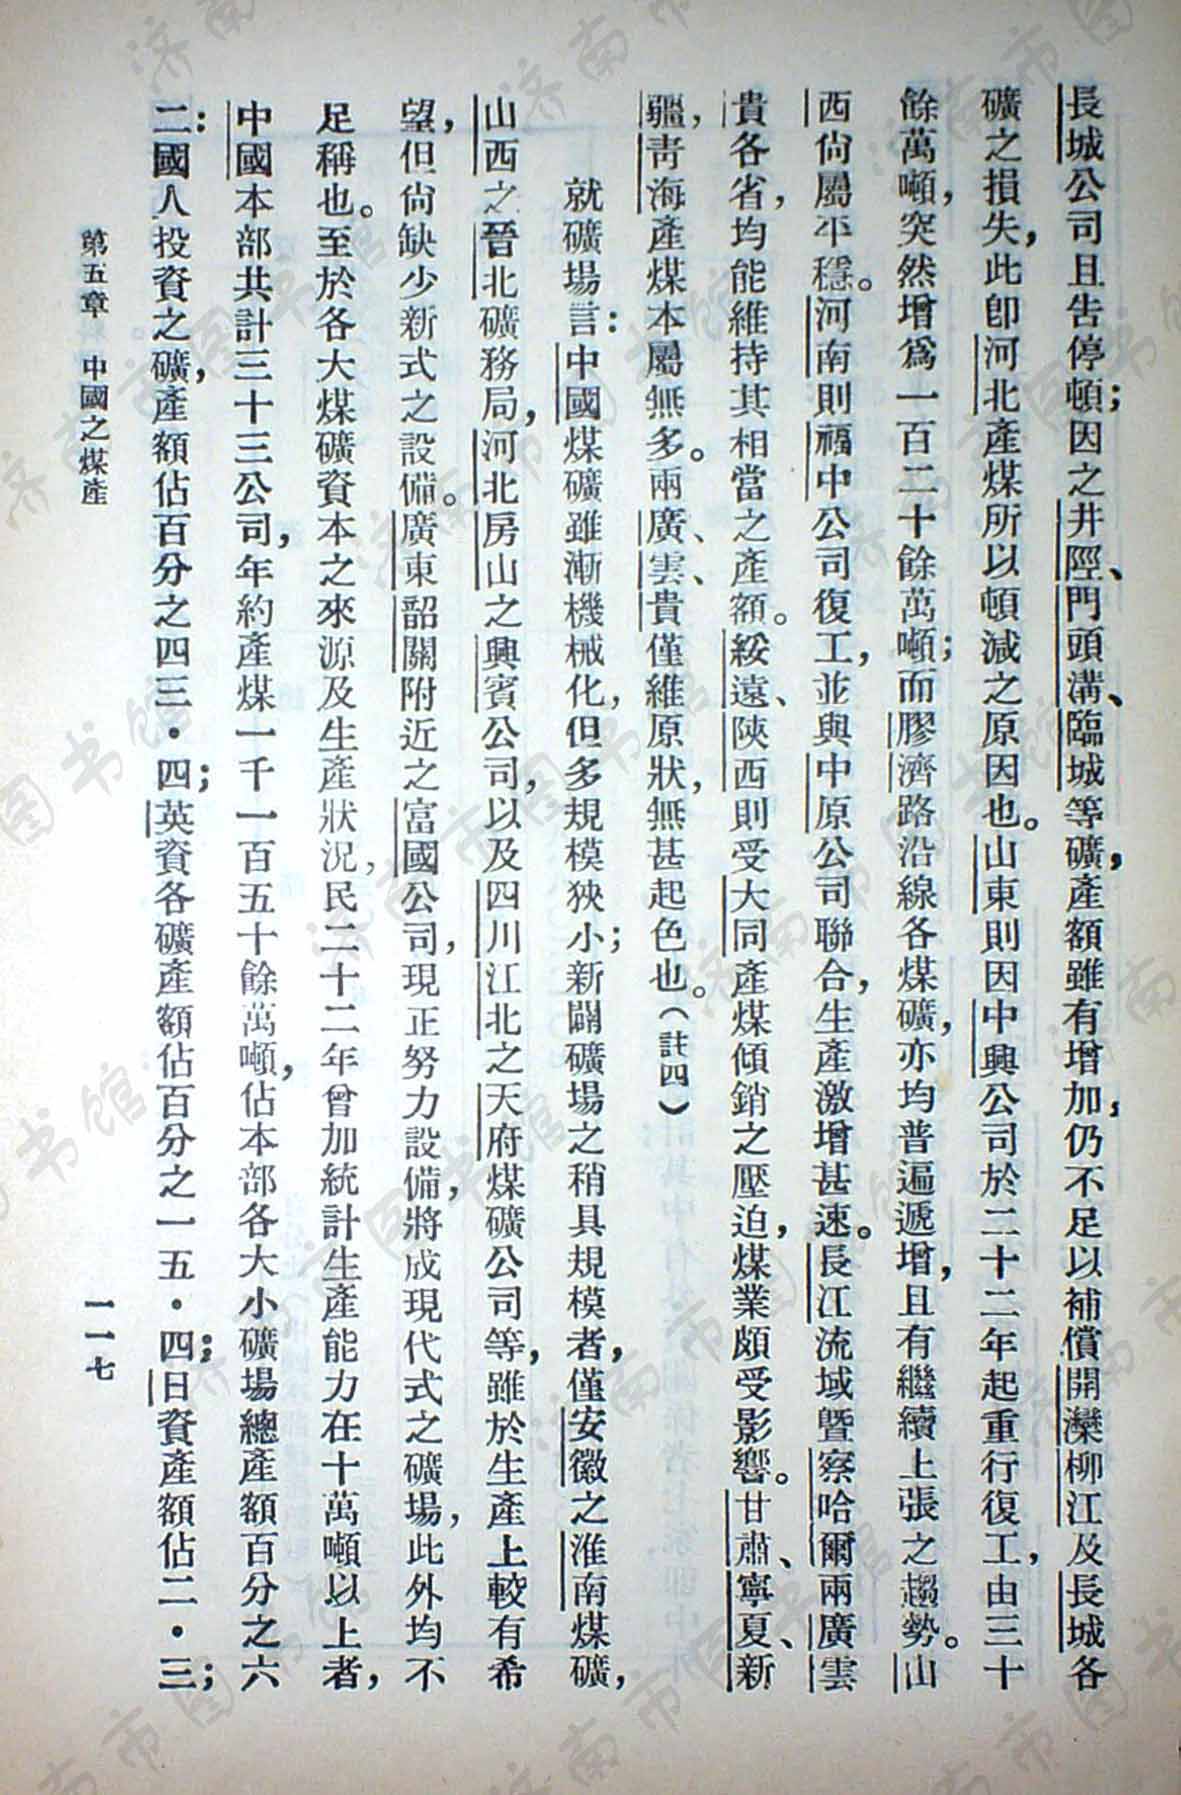 長城公司且告停頓；因之井陘、門頭溝、臨城等礦，產額雖有增加，仍不足以補償開灤柳江及長城各
礦之損失，此卽河北產煤所以頓減之原因也。山東則因中興公司於二十二年起重行復工，由三十
餘萬噸，突然增爲一百二十餘萬噸；而膠濟路沿線各煤礦，亦均普遍遞增，且有繼續上張之趨勢。山
西尙屬平穩。河南則福中公司復工，並與中原公司聯合，生產激增甚速。長江流域曁察哈爾兩廣雲
貴各省，均能維持其相當之產額。綏遠、陝西則受大同產煤傾銷之壓迫，煤業頗受影響。甘肅、寧夏、新
疆，靑海產煤本屬無多。兩廣、雲、貴僅維原狀，無甚起色也。（註四）
就礦場言：中國煤礦雖漸機械化，但多規模狹小；新闢礦場之稍具規模者，僅安徽之淮南煤礦，
山西之晉北礦務局，河北房山之興賓公司，以及四川江北之天府煤礦公司等，雖於生產上較有希
望，但尙缺少新式之設備。廣東韶關附近之富國公司，現正努力設備，將成現代式之礦場，此外均不
足稱也。至於各大煤礦資本之來源及生產狀況，民二十二年曾加統計生產能力在十萬噸以上者，
中國本部共計三十三公司，年約產煤一千一百五十餘萬噸，佔本部各大小礦場總產額百分之六
二：國人投資之礦，產額佔百分之四三·四；英資各礦產額佔百分之一五·四；日資產額佔二·三；
第五章　中國之煤產
一一七
济南市图书馆